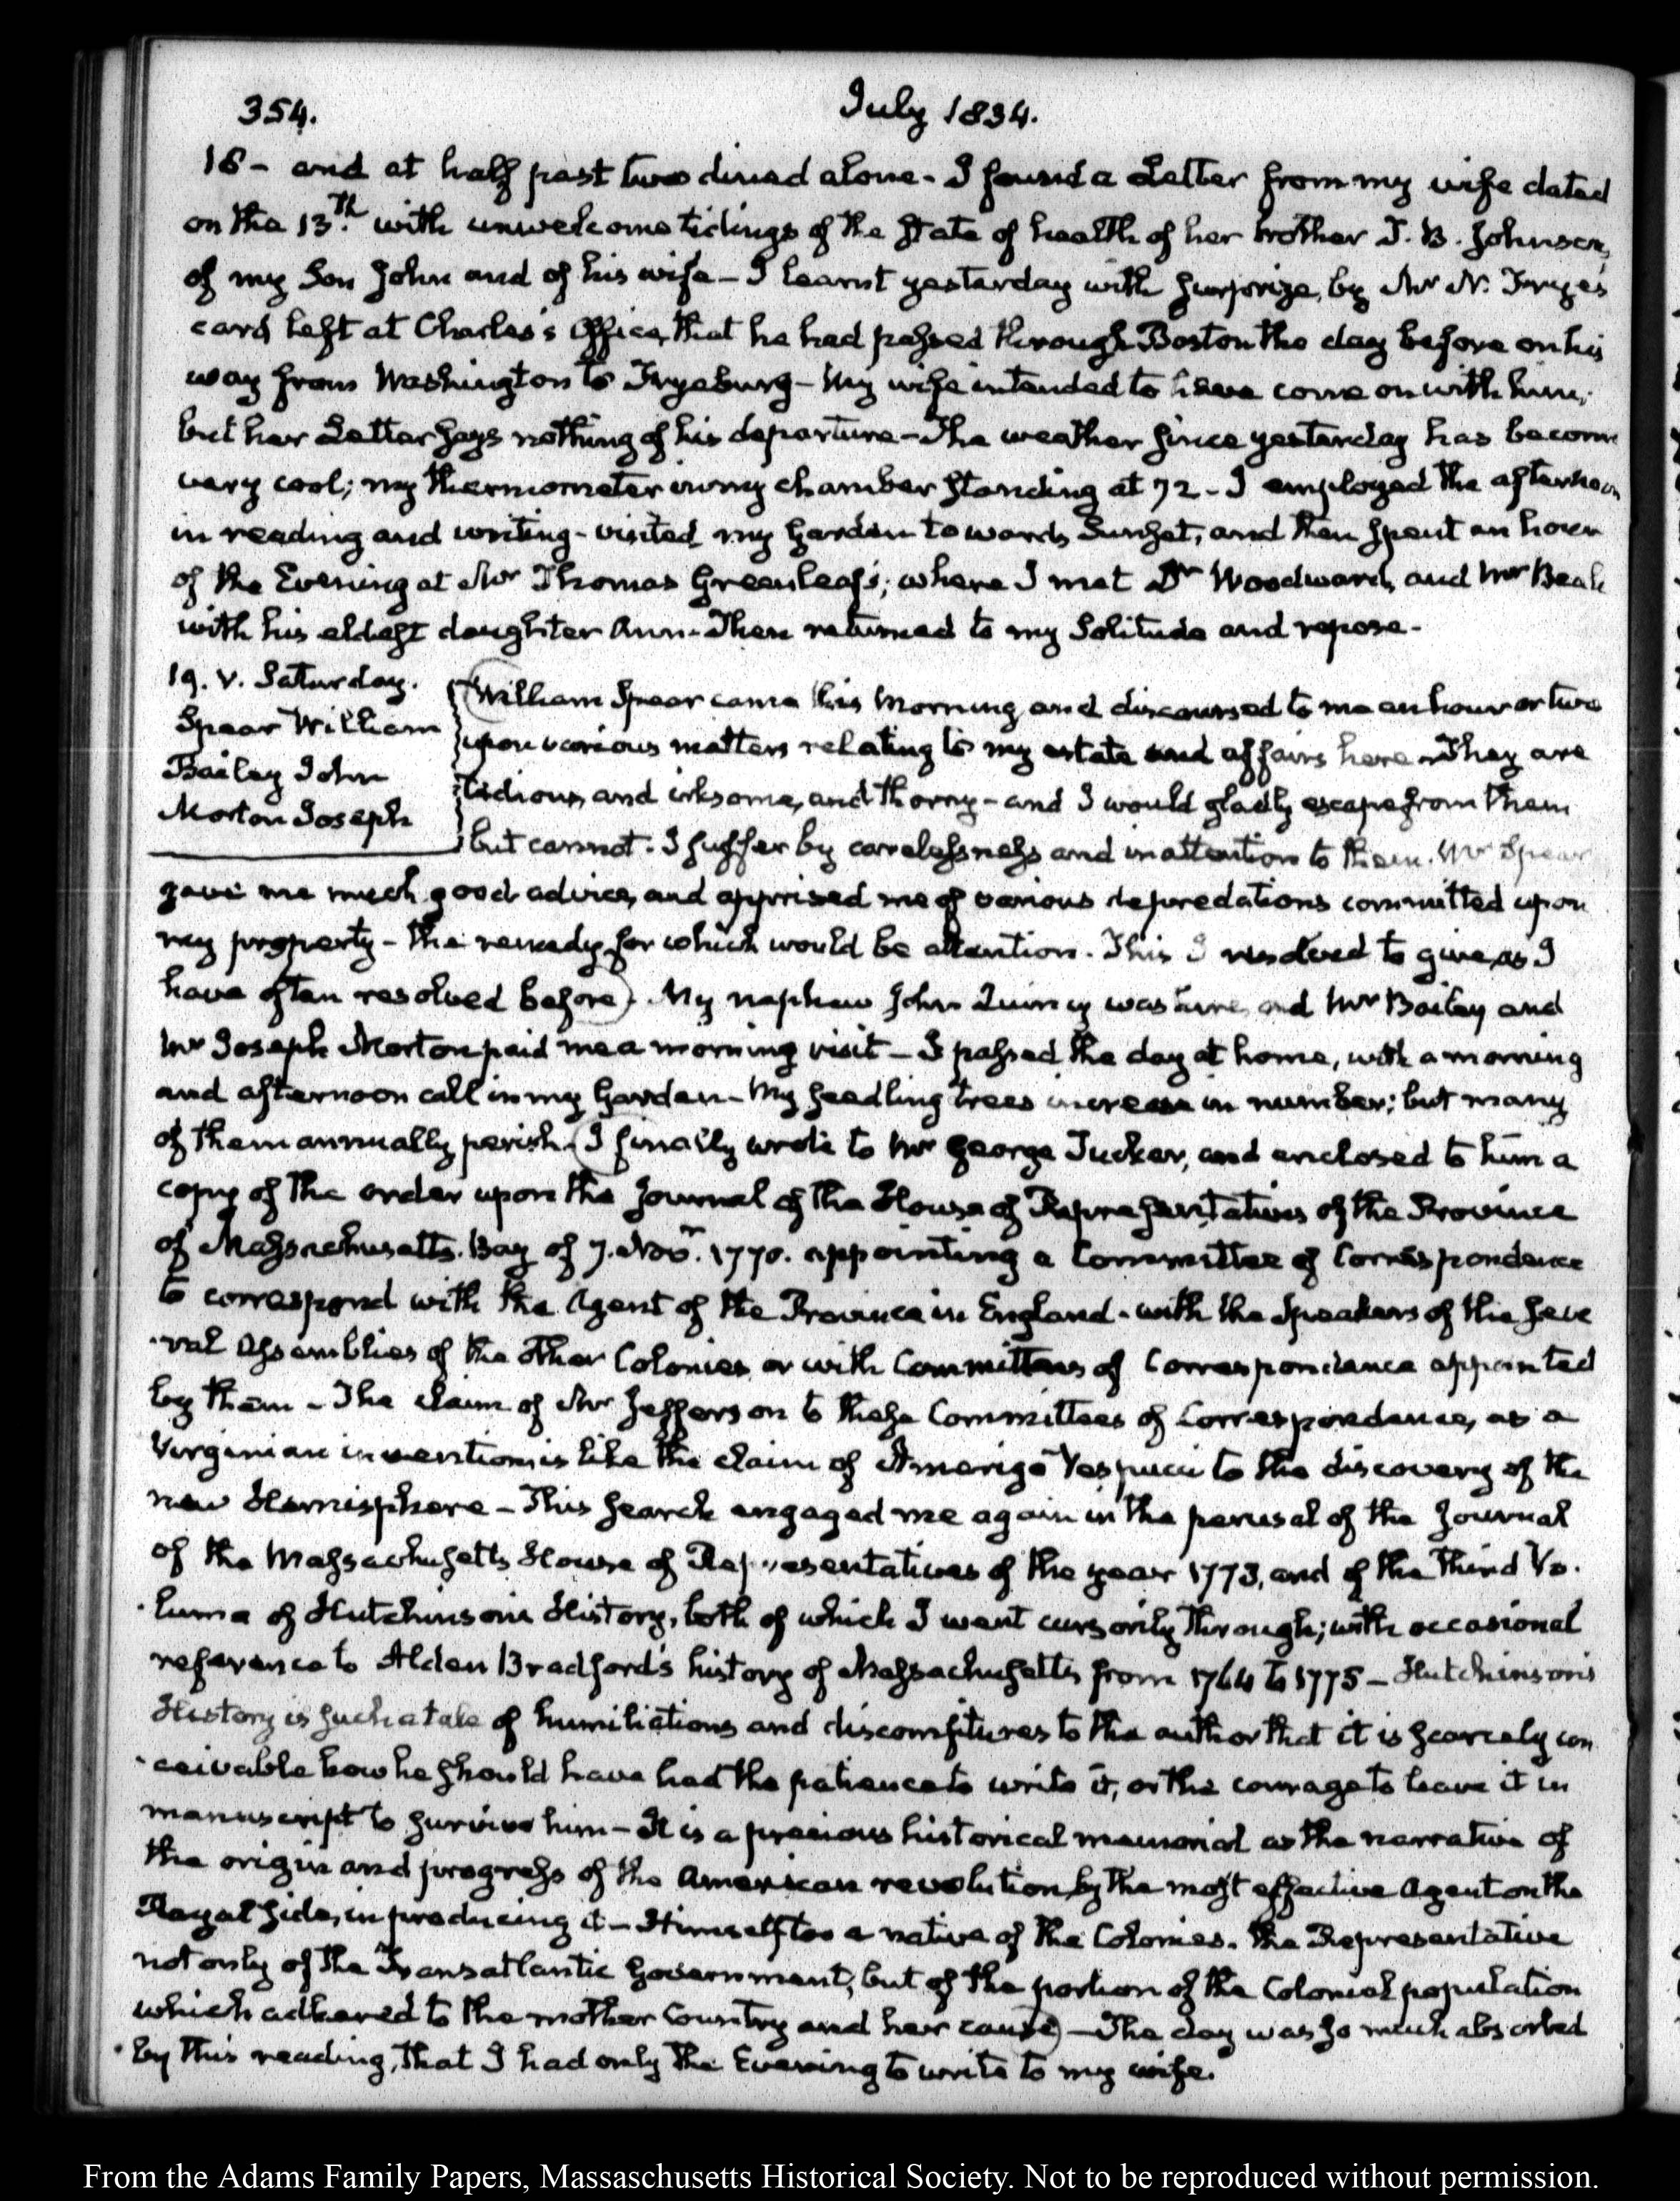 354.
July 1834.
18- and at half past two dined alone- I found a Letter from my wife dated
on the 13.th with unwelcome tidings of the State of health of her brother T. B. Johnson,
of my Son John and of his wife- I learnt yesterday with surprize, by Mr N. Frye's
card left at Charles's Office, that he had passed through Boston the day before on his
way from Washington to Fryeburg- My wife intended to have come on with him;
but her Letter says nothing of his departure- The weather since yesterday has become
very cool; my thermometer in my chamber standing at 72- I employed the afternoon
in reading and writing- visited my Garden towards Sunset, and then spent an hour
of the Evening at Mr Thomas Greenleaf's; where I met Dr Woodward, and Mr Beale
with his eldest daughter Ann- Then returned to my Solitude and repose-
19. V. Saturday.
Spear William
Bailey John
Morton Joseph
William Spear came this Morning and discoursed to me an hour or two
upon various matters relating to my estate and affairs here- They are
tedious, and irksome, and thorny- and I would gladly escape from them
but cannot. I suffer by carelessness and inattention to them. Mr Spear
gave me much good advice, and apprised me of various depredations committed upon
my property- the remedy for which would be attention. This I resolved to give, as I
have often resolved before). My nephew John Quincy was here, and Mr Bailey and
Mr Joseph Morton paid me a morning visit- I passed the day at home, with a morning
and afternoon call in my Garden- My seedling trees increase in number; but many
of them annually perish- (I finally wrote to Mr George Tucker, and enclosed to him a
copy of the order upon the Journal of the House of Representatives of the Province
of Massachusetts-Bay of 7. Novr. 1770. appointing a Committee of Correspondence
to correspond with the Agent of the Province in England- with the Speakers of the seve
-ral Assemblies of the other Colonies or with Committees of Correspondence appointed
by them- The claim of Mr Jefferson to these Committees of Correspondence, as a
Virginian invention, is like the claim of Amerigo Vespucci to the discovery of the
new Hemisphere- This search engaged me again in the perusal of the Journal
of the Massachusetts House of Representatives of the year 1773, and of the Third Vo-
-lume of Hutchinson's History, both of which I went cursorily through; with occasional
reference to Alden Bradford's history of Massachusetts from 1764 to 1775- Hutchinson's
History is such a tale of humiliations and discomfitures to the author that it is scarcely con
-ceivable how he should have had the patience to write it, or the courage to leave it in
manuscript to survive him- It is a precious historical memorial as the narrative of
the origin and progress of the American revolution by the most effective Agent on the
Royal side, in producing it- Himself too a native of the Colonies. the Representative
not only of the Transatlantic Government, but of the portion of the Colonial population
which adhered to the mother Country and her cause)- The day was so much absorbed
by this reading, that I had only the Evening to write to my wife.
From the Adams Family Papers, Massaschusetts Historical Society. Not to be reproduced without permission.